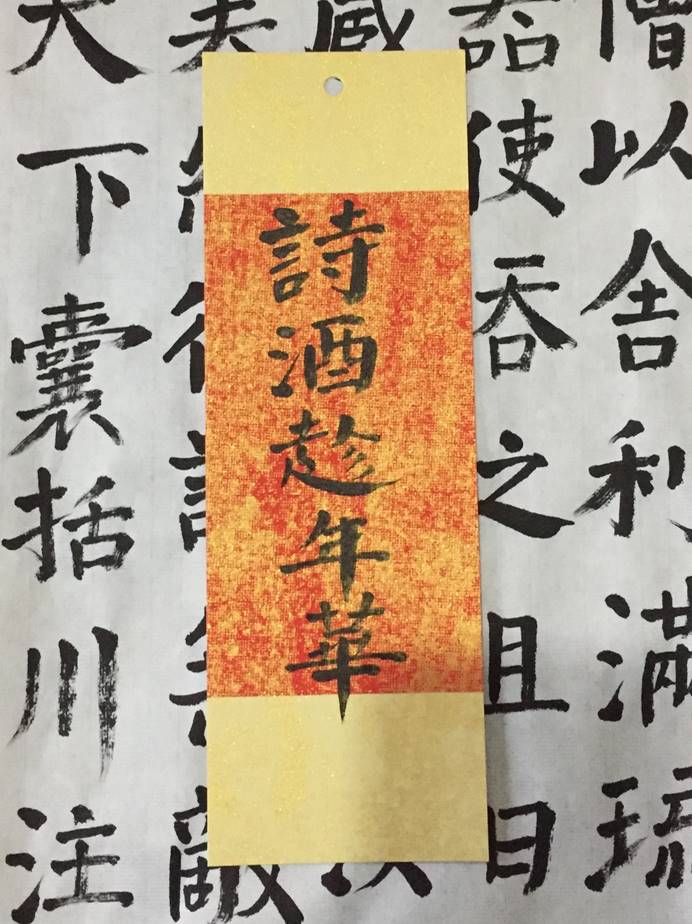 詩酒趁年華
僧以舍利滿琉
器使吞之且曰
藏
敵
天下囊括川注